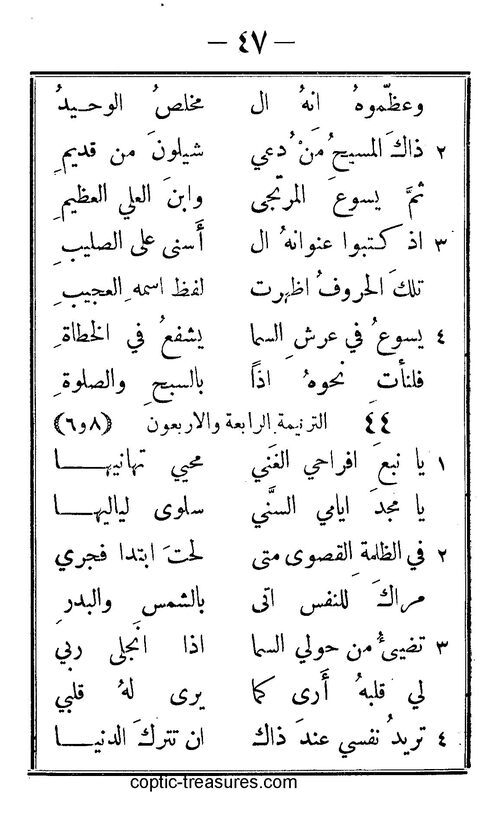 — ٤٧ —
وعظّموهُ انهُ ال مخلصُ الوحيدُ
٢ ذاكَ المسيحُ مَنْ دُعي شيلونَ من قديمِ
ثمَّ يسوعَ المرتجى وابنَ العلي العظيمِ
٣ اذ كتبوا عنوانهُ ال أَسنى على الصليبِ
تلكَ الحروفُ اظهرت لفظ اسمهِ العجيبِ
٤ يسوعُ في عرشِ السما يشفعُ في الخطاةِ
فلنأتِ نحوهُ اذًا بالسبحِ والصلوةِ
٤٤ الترنيمة الرابعة والاربعون (٨و٦)
١ يا نبعَ افراحي الغَني محيي تهانيهـا
يا مجدَ ايامي السنَّي سلوى لياليهـا
٢ في الظلمة القصوى متى لحتَ ابتدا فجري
مراكَ للنفس اتى بالشمسِ والبدرِ
٣ تضيئُ من حولي السما اذا انجلى ربي
لي قلبهُ أَرى كما يرى لهُ قلبي
٤ تريدُ نفسي عندَ ذاك ان تتركَ الدنيـا
coptic-treasures.com